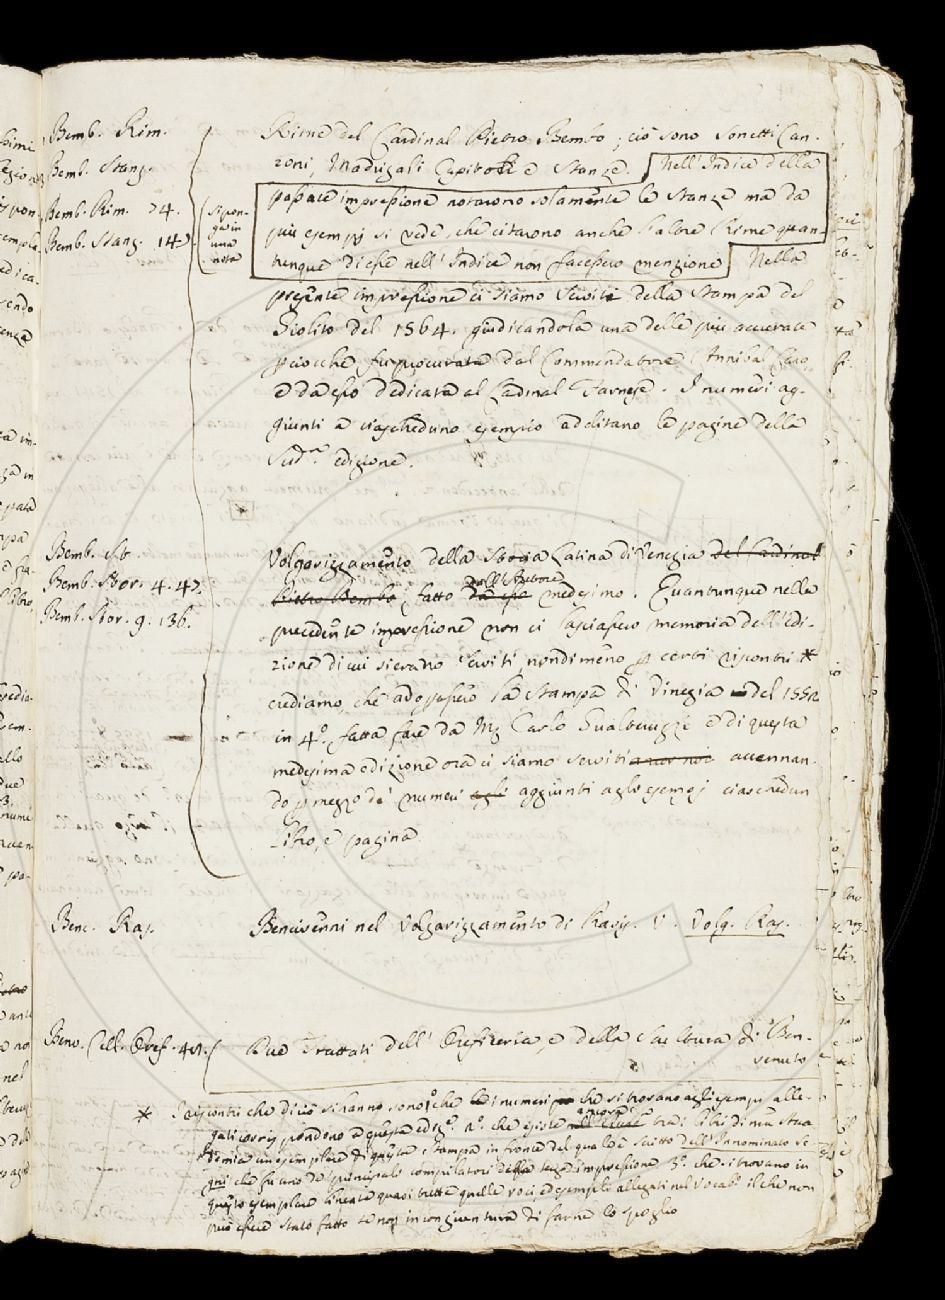 Bemb. Rim.
Bemb. Stanz.
Bemb. Rim. 74.
Bemb. Stanz. 147.
si pon-
ga in
una
nota
Rime del Cardinal Pietro Bembo; cioè sono sonetti Can-
zoni, Madrigali Capitoli e Stanze. Nell'Indice della
passate impressione notarono solamente le Stanze ma da
più esempj si vede, che citarono anche l'altre Rime quan-
tunque di esse nell'Indice non facessero menzione Nella
presente impressione ci siamo serviti della Stampa del
Giolito del 1564. giudicandola una delle più accurate
perciocchè fu procurata dal Commendatore Annibal Caro,
e da esso dedicata al Cardinal Farnese. I numeri ag-
giunti a ciascheduno esempio additano le pagine della
Sudª. edizione.
*
Bemb. St.
Bemb. Stor. 4. 47.
Bemb. Stor. 9. 136.
Volgarizzamento della Storia Latina di Venezia del Cardinal
Pietro Bembo, fatto da esso dall'Autore medesimo. Quantunque nella
precedente impressione non ci lasciassero memoria dell'edi-
zione di cui si erano serviti, nondimeno per certi riscontri *
crediamo, che adoprassero la Stampa di Vinegia del 1552
in 4º. fatta fare da Mª Carlo Gualteruzzi e di questa
medesima edizione ora ci siamo serviti accennan-
do per mezzo de' numeri agli aggiunti agli esempj ciaschedun
libro, e pagina.
Benc. Ras.
Bencivenni nel Volgarizzamento di Rasis. V. Volg. Ras.
Benv. Cell. Oref. 41.
Due Trattati dell'Orificeria, e della Scultura di Ben-
venuto
* I riscontri che di ciò si hanno sono 1º. che i numeri che si trovano agli esempj alle-
gati corrispondono a questa ediz. 2º. che esiste ancora tra i libri di nostra Acca-
demia un esemplare di questa stampa in fronte del quale è scritto dell'Innominato Se-
gni che fu uno de' principali compilatori della terza impressione 3º. che si trovano in
questo esemplare lineate quasi tutte quelle voci ed esempli allegati nel Vocabº il che non
può essere stato fatto se non in congiuntura di farne lo spoglio